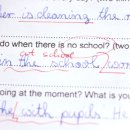 er is cleaning the
do when there is no school? (two
at school
in the school,
oing at the moment? What is you
he with pupils. He